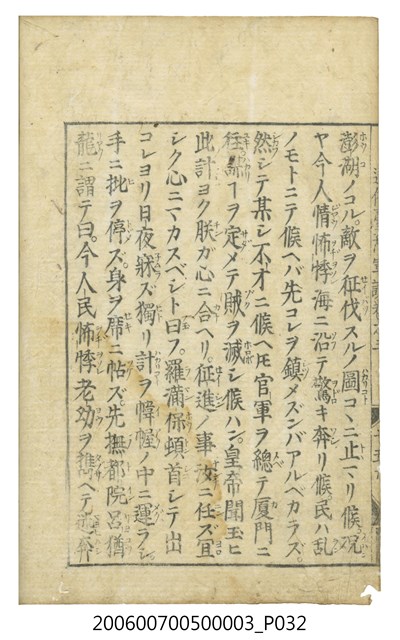 澎湖ノコル。敵ヲ征伐スルノ圖コヽニ止マリ候況
ヤ今人情怖悸海ニ沿テ驚キ奔リ候民ハ乱
ノモトニテ候ヘバ先コレヲ鎮メズンバアルベカラズ。
然シテ某シ不才ニ候ヘ𪜈官軍ヲ總テ厦門ニ
ヲ定メテ賊ヲ滅シ候ハン。皇帝聞玉ヒ
此計ヨク朕ガ心ニ合ヘリ。征進ノ事汝ニ任ズ宜
シク心ニマカスベシト曰フ。羅滿保頓首シテ出
コレヨリ日夜寐ズ獨リ計ヲ幃幄ノ中ニ運ラシ。
手ニ批ヲ停ズ。身ヲ席ニ帖ズ。先撫都院呂猶
龍ニ謂テ曰。今人民怖悸老幼ヲ雋ヘテ逃奔
200600700500003_P032